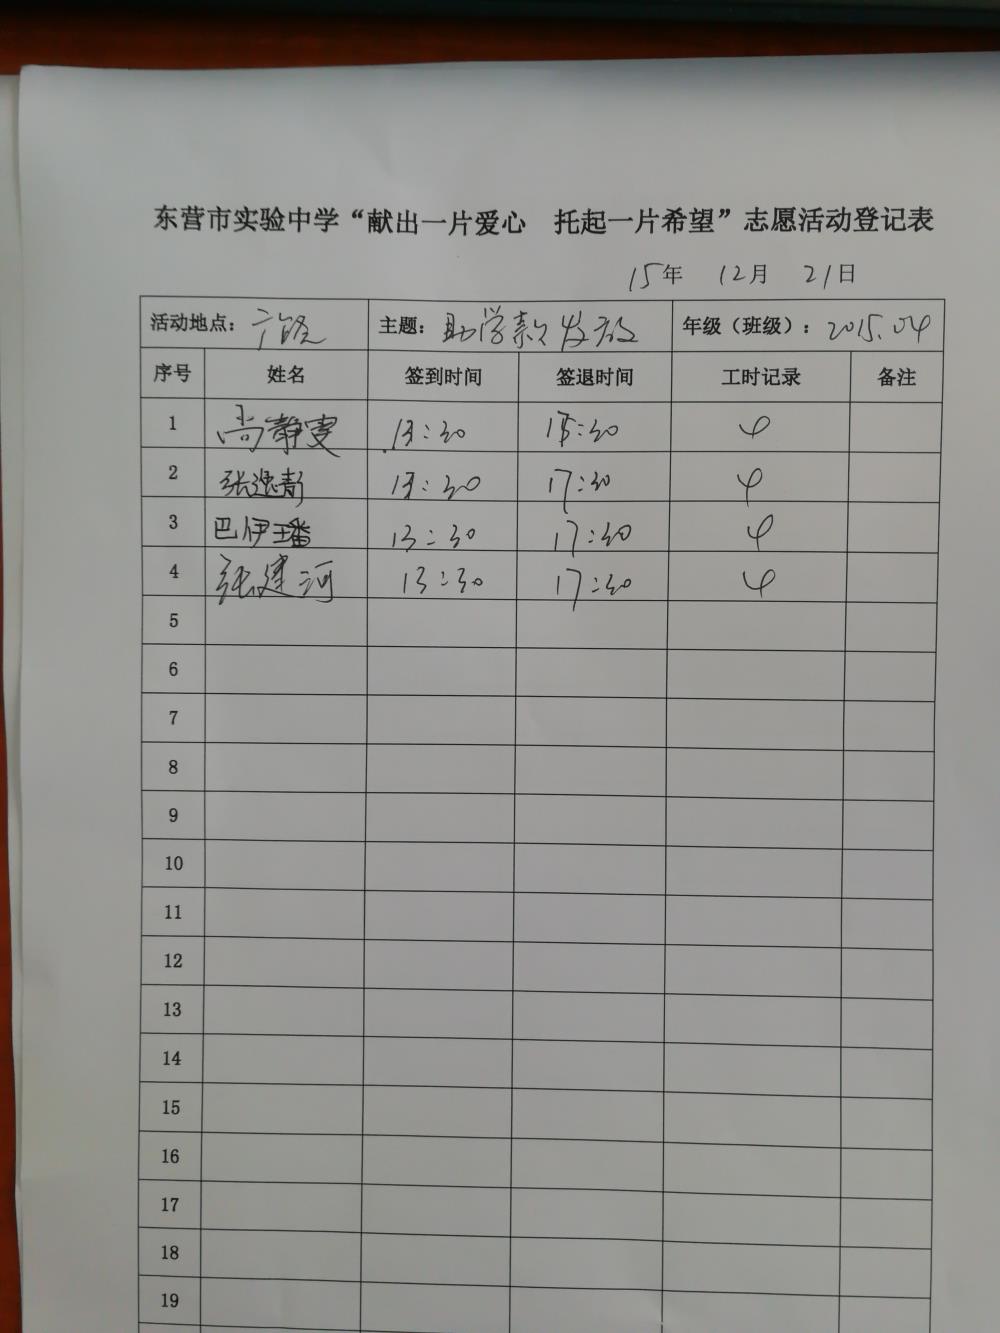 东营市实验中学“献出一片爱心 托起一片希望”志愿活动登记表
15年 12月 21日
活动地点：广饶 主题：助学款发放 年级（班级）：2015.04
序号 姓名 签到时间 签退时间 工时记录 备注
1 尚静雯 13:30 :30 4
2 张逸 13:30 17:30 4
3 巴伊璠 13:30 17:30 4
4 张建河 13:30 17:30 4
5
6
7
8
9
10
11
12
13
14
15
16
17
18
19